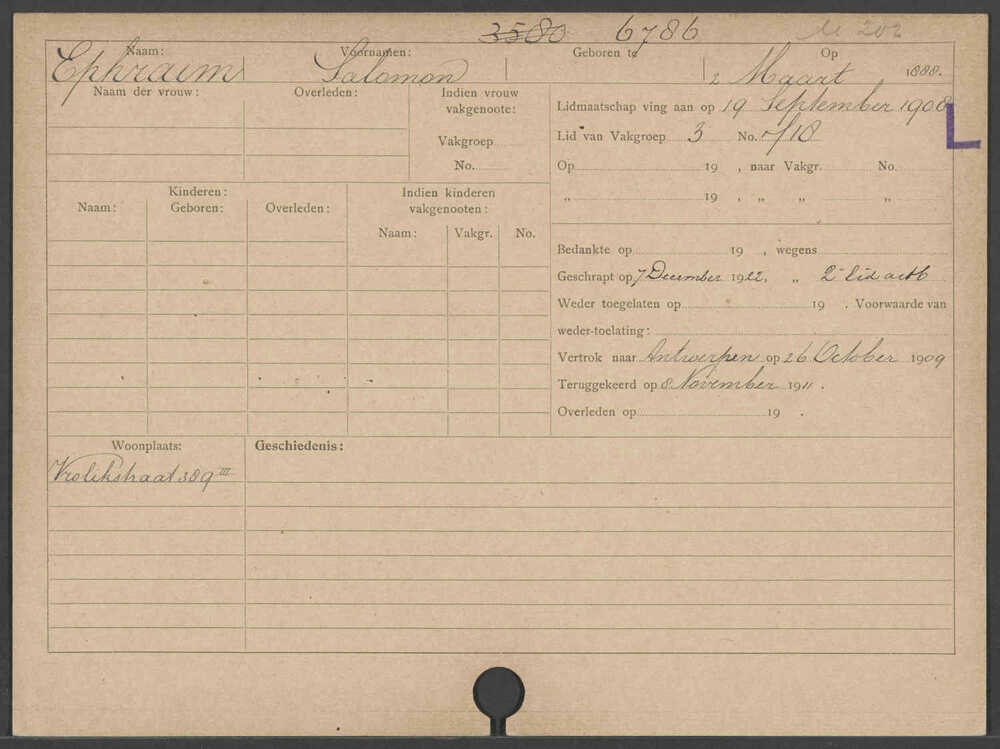 3580 6786 M 202
Naam: Voornamen: Geboren te Op
Ephraim Salomon 2 Maart 1888.
Naam der vrouw: Overleden: Indien vrouw vakgenoote:
Vakgroep
No.
Lidmaatschap ving aan op 19 September 1908
L
Lid van Vakgroep 3 No. 718
Op 19 , naar Vakgr. No.
„ 19 , „ „ „
Kinderen: Indien kinderen vakgenooten:
Naam: Geboren: Overleden: Naam: Vakgr. No.
Bedankte op 19 , wegens
Geschrapt op 7 December 1922, „ 2e Lid art 6
Weder toegelaten op 19 . Voorwaarde van
weder-toelating:
Vertrok naar Antwerpen op 26 October 1909
Teruggekeerd op 8 November 1911.
Overleden op 19 .
Woonplaats: Geschiedenis:
Vrolikstraat 389 III